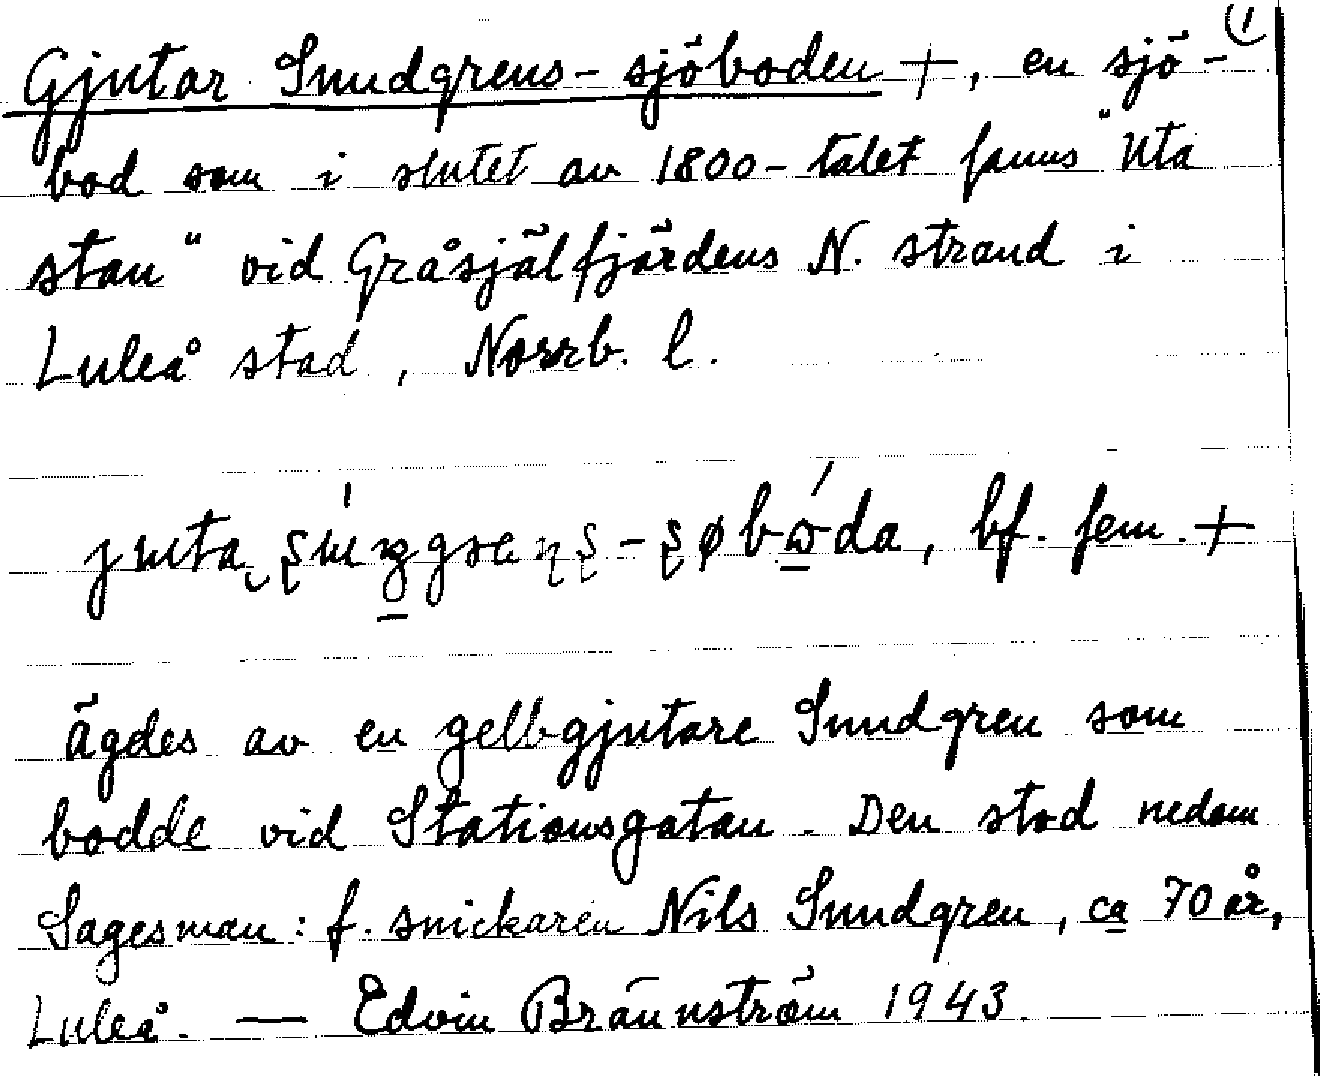 ①
Gjutar Sundgrens-sjöboden +, en sjö-
bod som i slutet av 1800-talet fanns "Uta
stan" vid Gråsjälfjärdens N. strand i
Luleå stad, Norrb. l.
bf. fem. +
ägdes av en gelbgjutare Sundgren som
bodde vid Stationsgatan. Den stod nedom
Sagesman: f. snickaren Nils Sundgren, ca 70 år,
Luleå. — Edvin Brännström 1943.